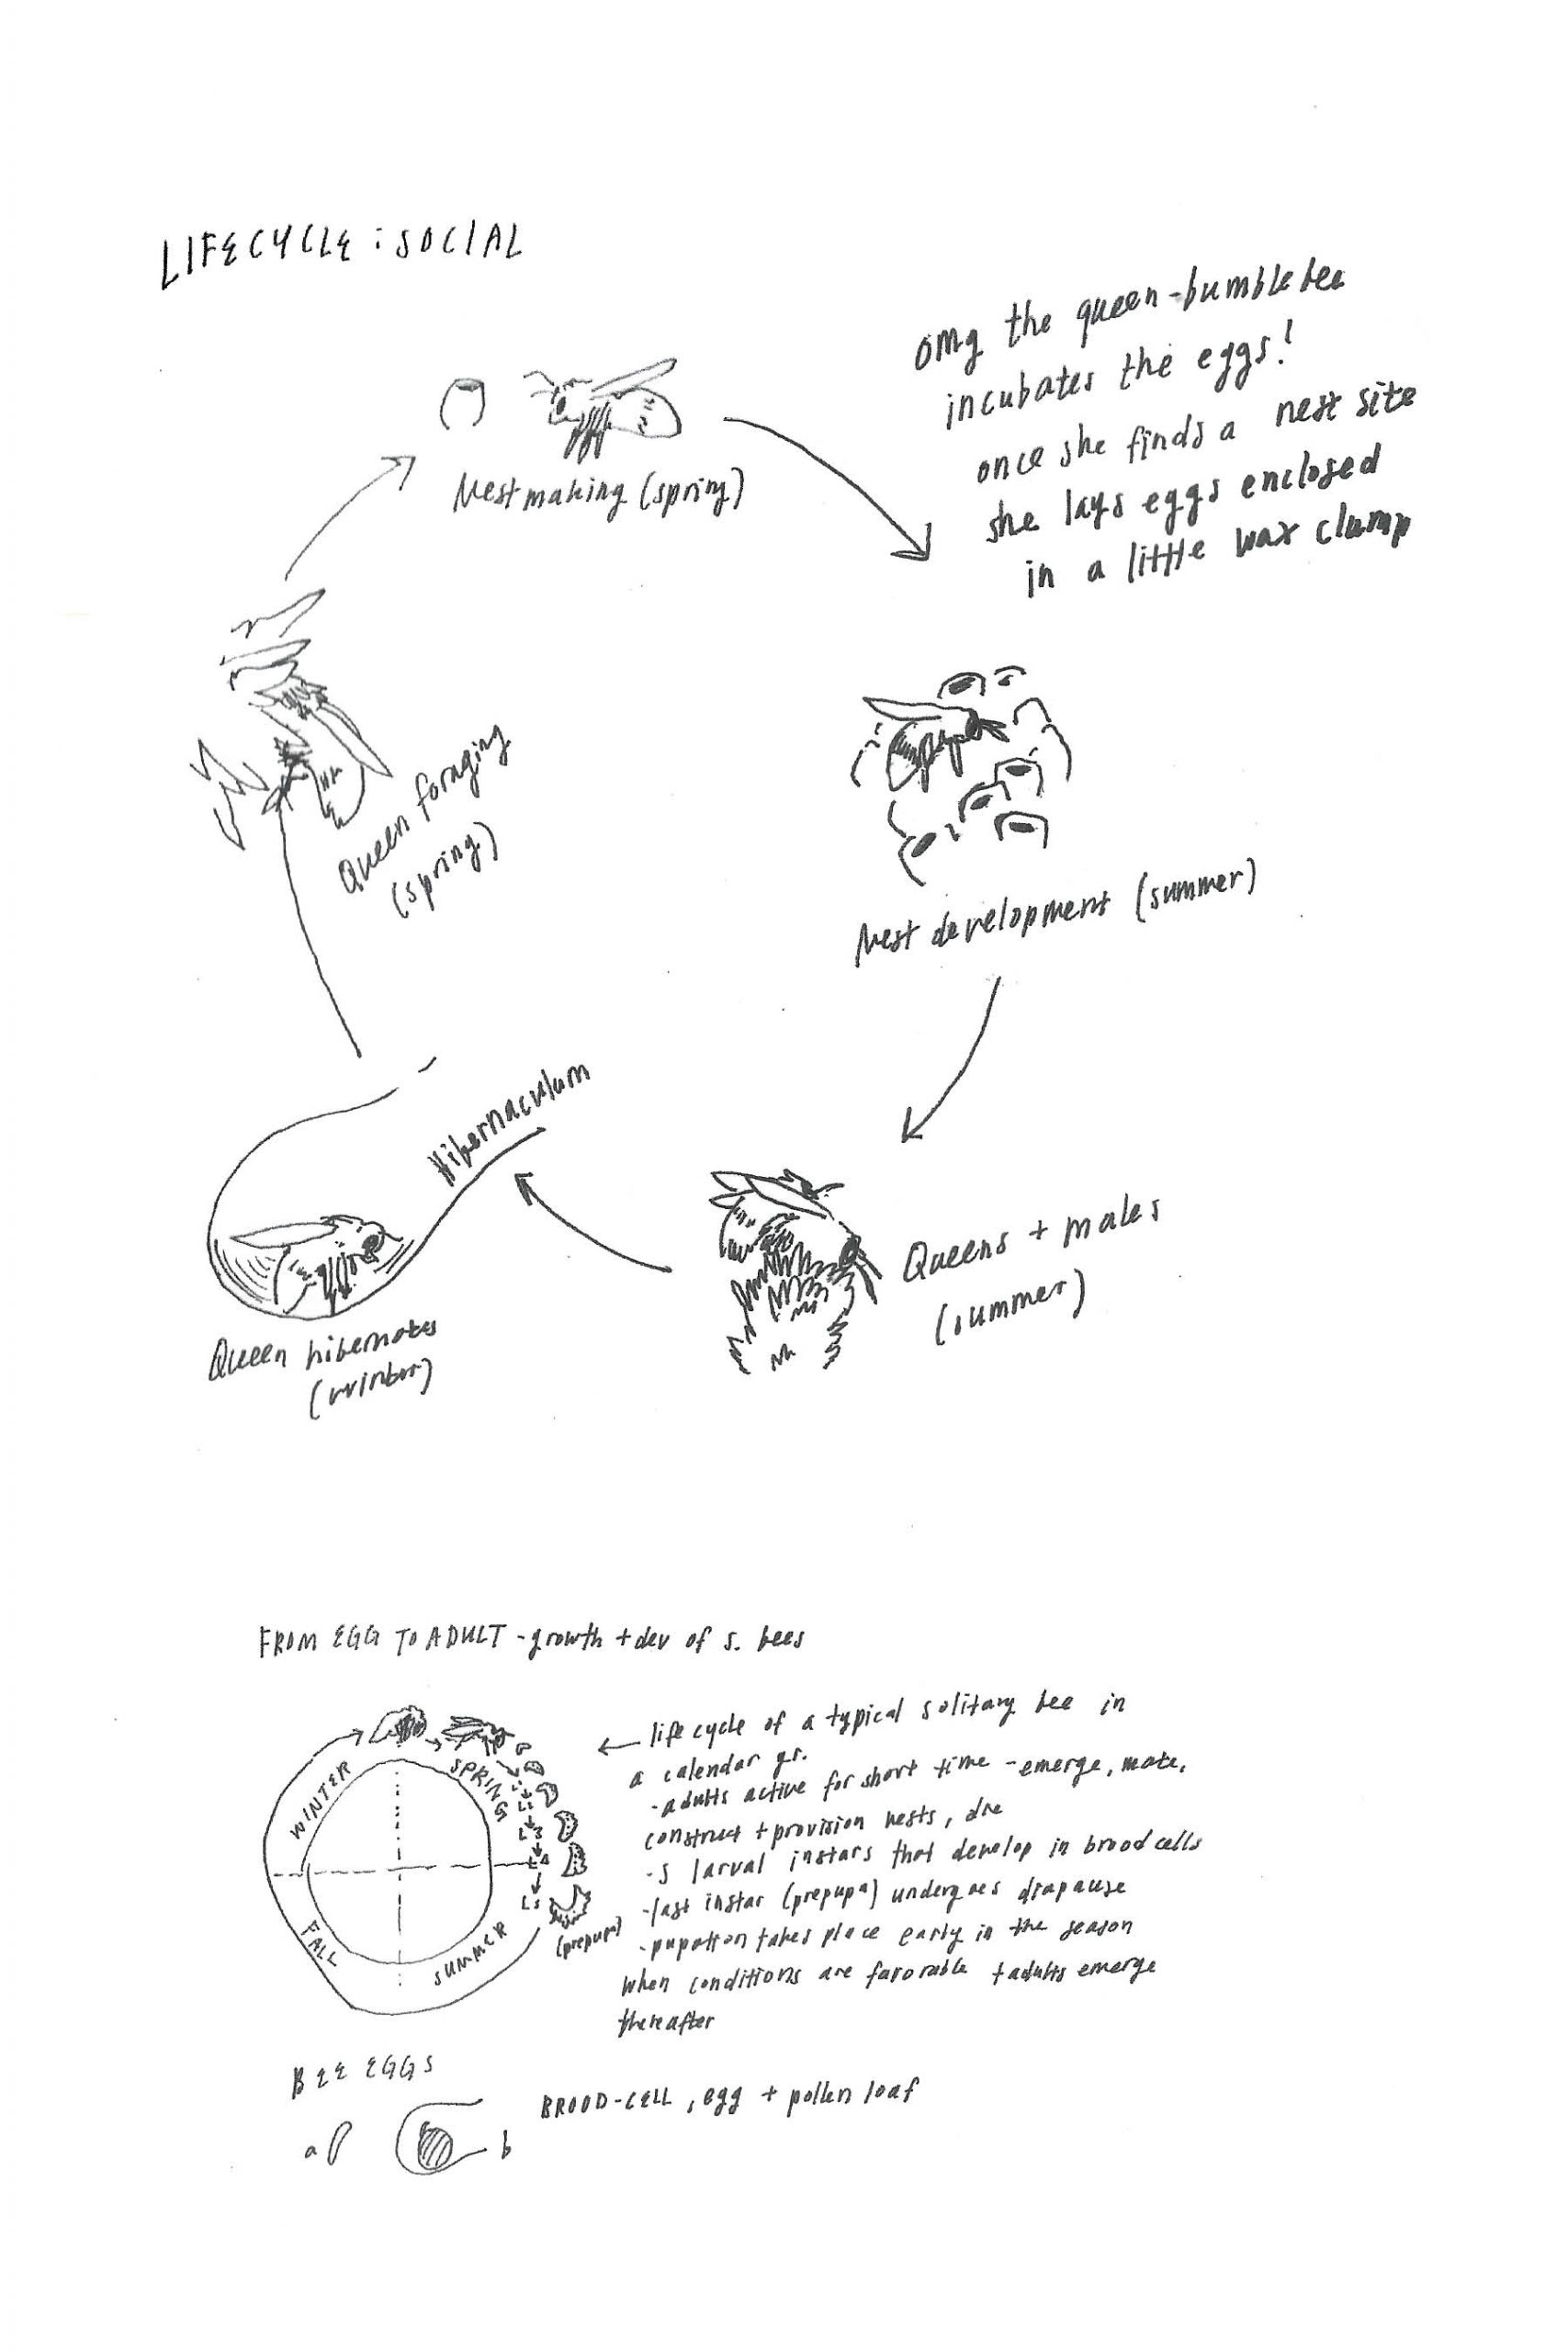 LIFECYCLE : SOCIAL
omg the queen-bumblebee
incubates the eggs!
once she finds a nest site
she lays eggs enclosed
in a little wax clump
Nest making (spring)
Queen foraging
(spring)
Nest development (summer)
Hibernaculum
Queens + males
(summer)
Queen hibernates
(winter)
FROM EGG TO ADULT - growth + dev of s. bees
life cycle of a typical solitary bee in
a calendar yr.
- adults active for short time - emerge, mate,
construct + provision nests, die
- 5 larval instars that develop in brood cells
- last instar (prepupa) undergoes diapause
- pupation takes place early in the season
when conditions are favorable + adults emerge
thereafter
WINTER
SPRING
L3
L4
L5
(prepupa)
FALL
SUMMER
BEE EGGS
BROOD-CELL, egg + pollen loaf
a
b